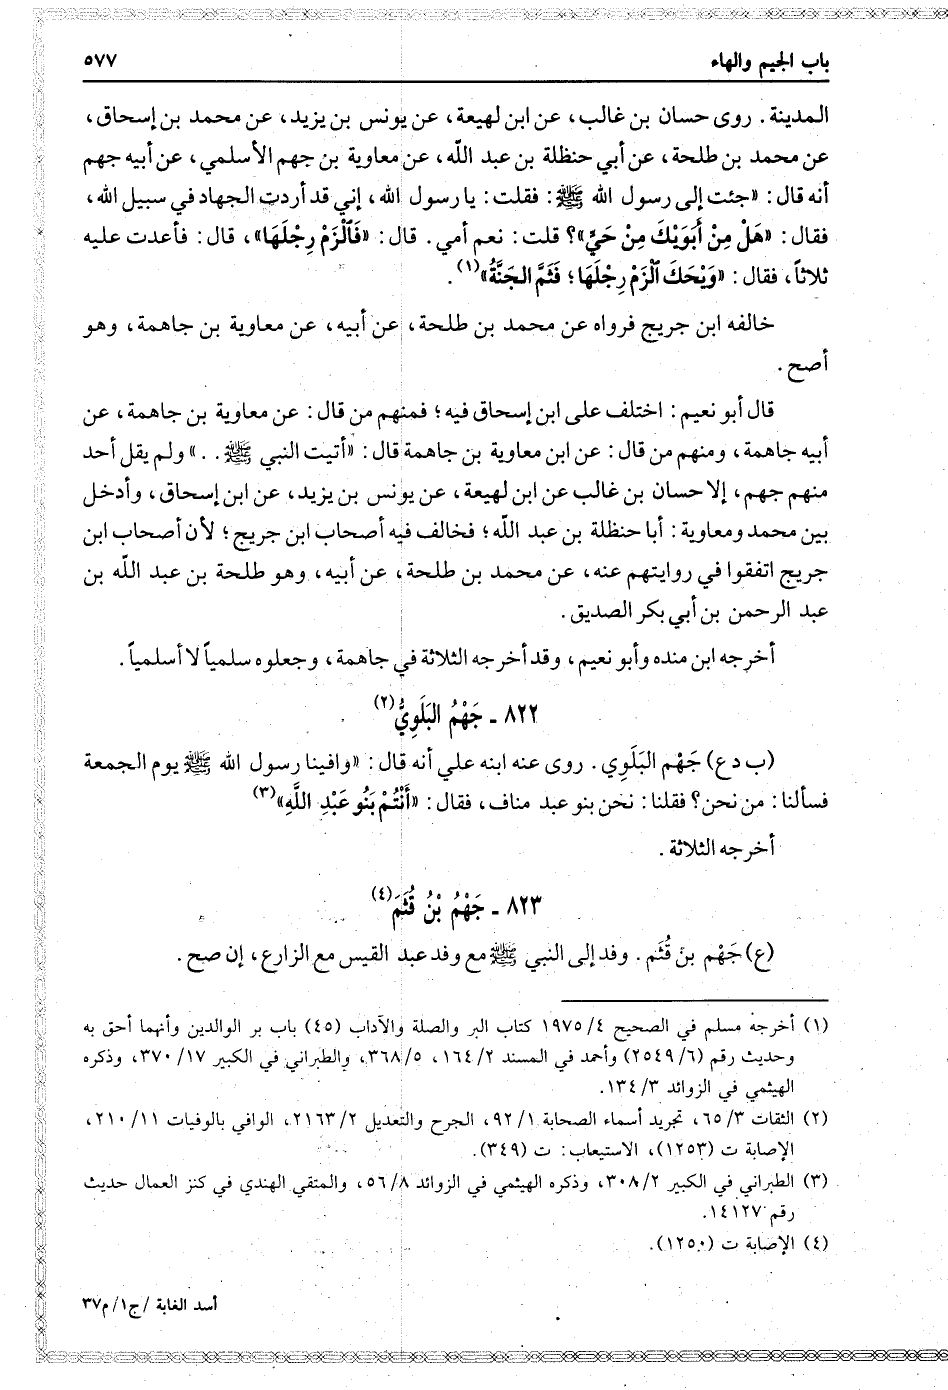 باب الجيم والهاء ٥٧٧
المدينة. روى حسان بن غالب، عن ابن لهيعة، عن يونس بن يزيد، عن محمد بن إسحاق،
عن محمد بن طلحة، عن أبي حنظلة بن عبد اللّه، عن معاوية بن جهم الأسلمي، عن أبيه جهم
أنه قال: «جئت إلى رسول الله ﷺ: فقلت: يا رسول الله، إني قد أردت الجهاد في سبيل الله،
فقال: «هَلْ مِنْ أَبَوَيْكَ مِنْ حَيٍّ»؟ قلت: نعم أمي. قال: «فَٱلْزَمْ رِجْلَهَا»، قال: فأعدت عليه
ثلاثاً، فقال: «وَيْحَكَ ٱلْزَمْ رِجْلَهَا؛ فَثَمَّ الجَنَّةُ»(١).
خالفه ابن جريج فرواه عن محمد بن طلحة، عن أبيه، عن معاوية بن جاهمة، وهو
أصح.
قال أبو نعيم: اختلف على ابن إسحاق فيه؛ فمنهم من قال: عن معاوية بن جاهمة، عن
أبيه جاهمة، ومنهم من قال: عن ابن معاوية بن جاهمة قال: «أتيت النبي ﷺ. .» ولم يقل أحد
منهم جهم، إلا حسان بن غالب عن ابن لهيعة، عن يونس بن يزيد، عن ابن إسحاق، وأدخل
بين محمد ومعاوية: أبا حنظلة بن عبد اللّه؛ فخالف فيه أصحاب ابن جريج؛ لأن أصحاب ابن
جريج اتفقوا في روايتهم عنه، عن محمد بن طلحة، عن أبيه، وهو طلحة بن عبد الله بن
عبد الرحمن بن أبي بكر الصديق.
أخرجه ابن منده وأبو نعيم، وقد أخرجه الثلاثة في جاهمة، وجعلوه سلمياً لا أسلمياً.
٨٢٢ ـ جَهْمُ البَلَوِيُّ(٢)
(ب د ع) جَهْم البَلَوِي. روى عنه ابنه علي أنه قال: «وافينا رسول الله ﷺ يوم الجمعة
فسألنا: من نحن؟ فقلنا: نحن بنو عبد مناف، فقال: «أَنْتُمْ بَنُو عَبْدِ اللَّهِ»(٣)
أخرجه الثلاثة.
٨٢٣ ـ جَهْمُ بْنُ قُثَمَ(٤)
(ع) جَهْم بن قُثَم. وفد إلى النبي ﷺ مع وفد عبد القيس مع الزارع، إن صح.
(١) أخرجه مسلم في الصحيح ٤/ ١٩٧٥ كتاب البر والصلة والآداب (٤٥) باب بر الوالدين وأنهما أحق به
وحديث رقم (٦/ ٢٥٤٩) وأحمد في المسند ٢/ ١٦٤، ٥/ ٣٦٨، والطبراني في الكبير ١٧/ ٣٧٠، وذكره
الهيثمي في الزوائد ٣/ ١٣٤.
(٢) الثقات ٣/ ٦٥، تجريد أسماء الصحابة ١/ ٩٢، الجرح والتعديل ٢/ ٢١٦٣، الوافي بالوفيات ١١/ ٢١٠،
الإصابة ت (١٢٥٣)، الاستيعاب: ت (٣٤٩).
(٣) الطبراني في الكبير ٢/ ٣٠٨، وذكره الهيثمي في الزوائد ٨/ ٥٦، والمتقي الهندي في كنز العمال حديث
رقم ١٤١٢٧.
(٤) الإصابة ت (١٢٥٠).
أسد الغابة /ج١/ م٣٧